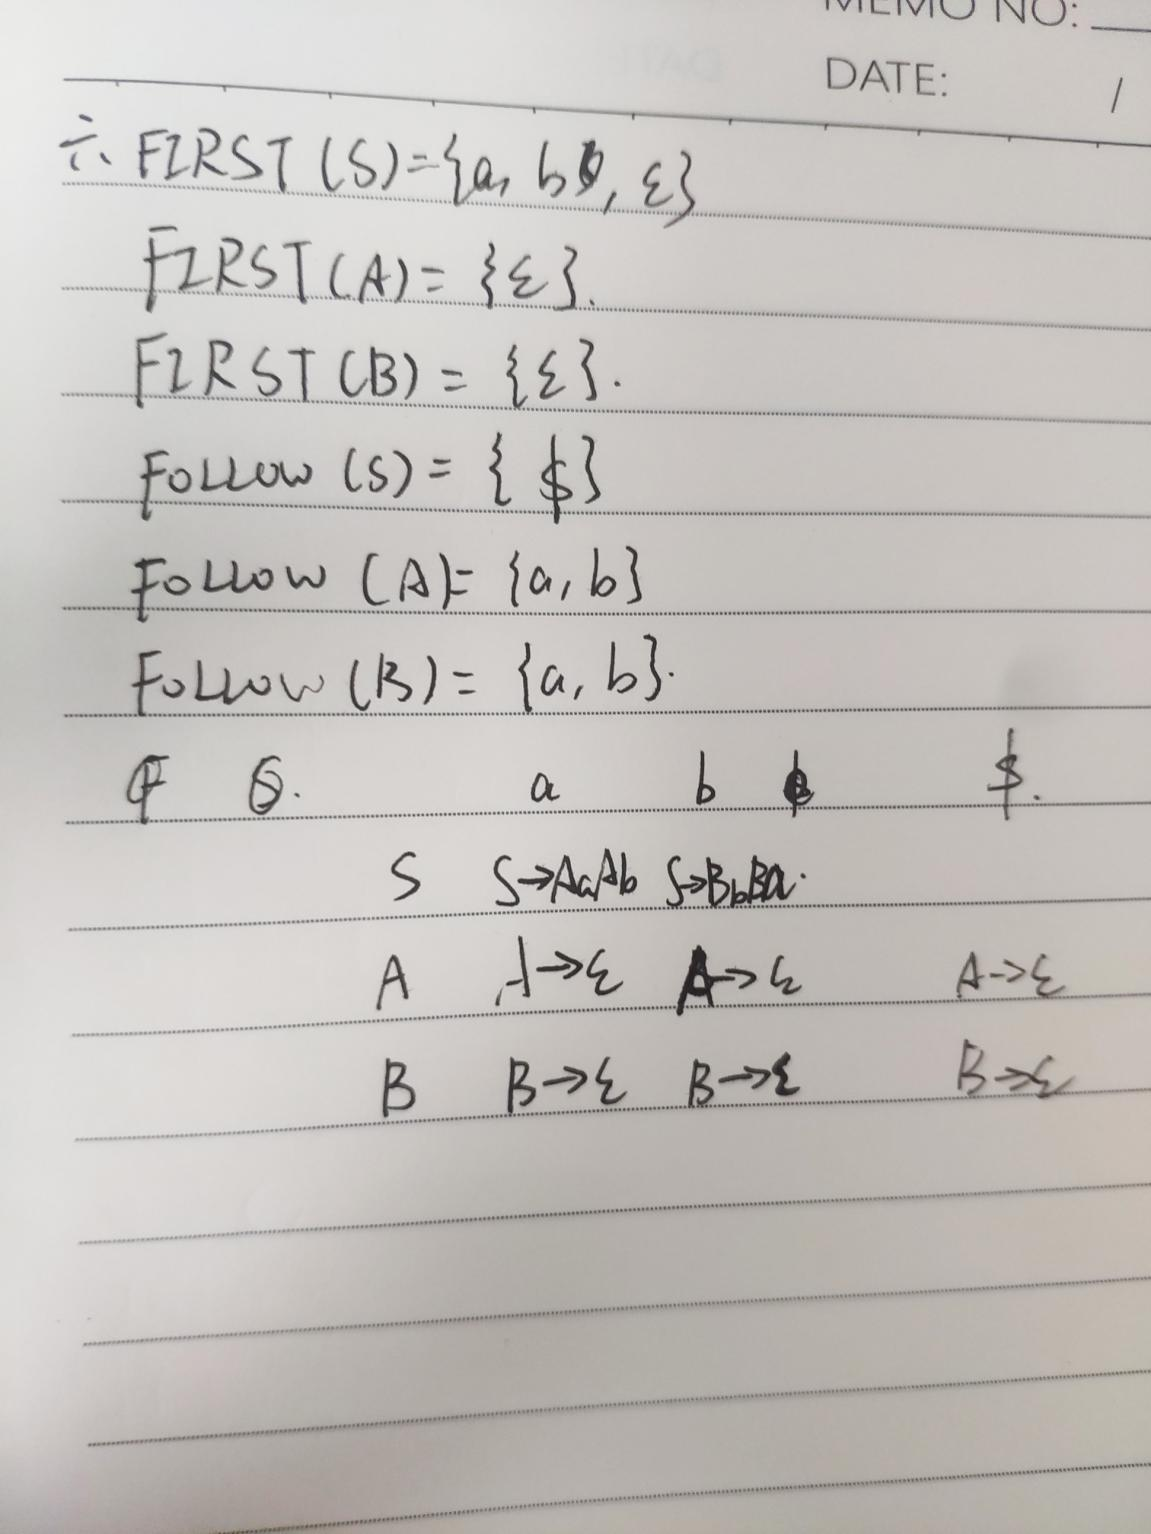 MEMO NO:
DATE: /
六、FIRST(S)={a, b, ε}
FIRST(A)= {ε}.
FIRST(B) = {ε}.
FOLLOW (S) = { $}
FOLLOW (A)= {a, b}
FOLLOW (B) = {a, b}.
a b $.
S S→AaAb S→BbBa.
A A→ε A→ε A→ε
B B→ε B→ε B→ε